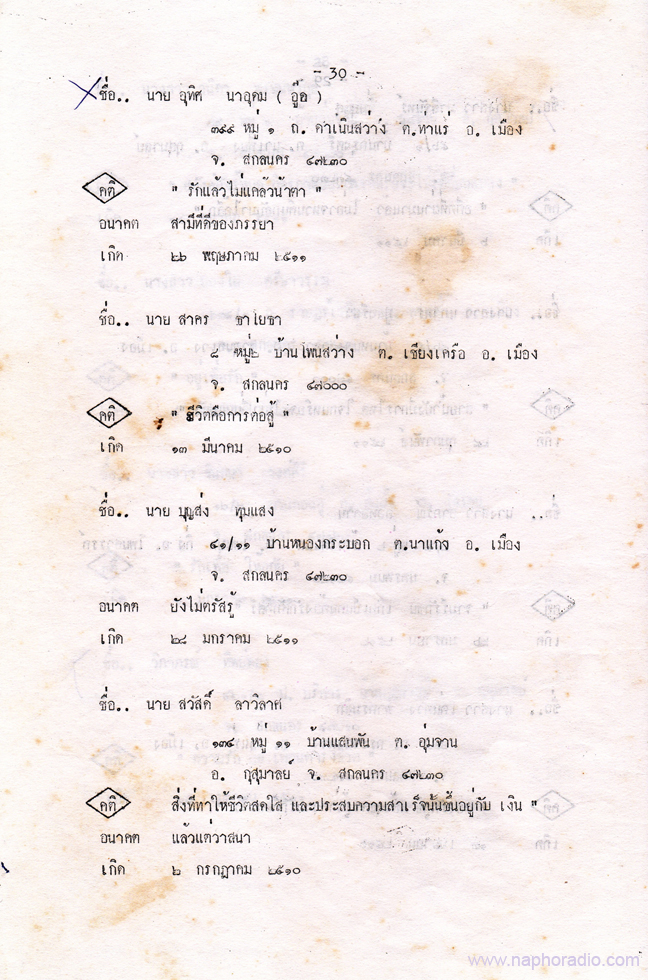 - 30 -
ชื่อ.. นาย อุทิศ นาอุดม ( อู๊ด )
๓๙๙ หมู่ ๑ ถ. ดำเนินสว่าง ต.ท่าแร่ อ. เมือง
จ. สกลนคร ๔๗๒๓๐
คติ " รักแล้วไม่แคล้วน้ำตา "
อนาคต สามีที่ดีของภรรยา
เกิด ๒๖ พฤษภาคม ๒๕๑๑
ชื่อ.. นาย สาคร ชาไชย
๘ หมู่๒ บ้านโพนสว่าง ต. เชียงเครือ อ. เมือง
จ. สกลนคร ๔๗๐๐๐
คติ " ชีวิตคือการต่อสู้ "
เกิด ๑๓ มีนาคม ๒๕๑๐
ชื่อ.. นาย บุญส่ง ทุมแสง
๔๑/๑๑ บ้านหนองกระบอก ต.นาแก้ง อ. เมือง
จ. สกลนคร ๔๗๒๓๐
อนาคต ยังไม่ตรัสรู้
เกิด ๒๘ มกราคม ๒๕๑๑
ชื่อ.. นาย สวัสดิ์ ลาวิลาศ
๑๓๔ หมู่ ๑๑ บ้านแสนพัน ต. อุ่มจาน
อ. กุสุมาลย์ จ. สกลนคร ๔๗๒๓๐
คติ สิ่งที่ทำให้ชีวิตสดใส และประสบความสำเร็จนั้นขึ้นอยู่กับ เงิน "
อนาคต แล้วแต่วาสนา
เกิด ๒ กรกฎาคม ๒๕๑๐
www.naphoradio.com